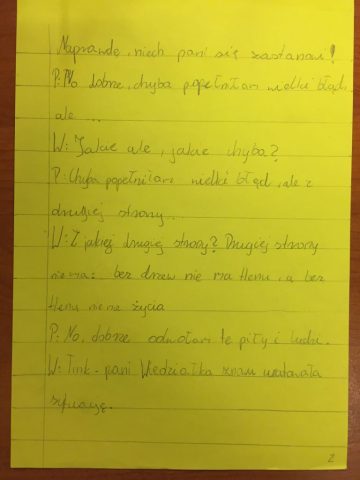 Naprawdę, niech pani się zastanowi!
P: No dobrze, chyba popełniłam wielki błąd,
ale ...
W: Jakie ale, jakie chyba?
P: Chyba popełniłam wielki błąd, ale z
drugiej strony...
W: Z jakiej drugiej strony? Drugiej strony
nie ma: bez drzew nie ma tlenu, a bez
tlenu nie ma życia
P: No, dobrze odwołam te piły i ludzi.
W: Tink - pani Wiedziałka znów uratowała
sytuację.
2